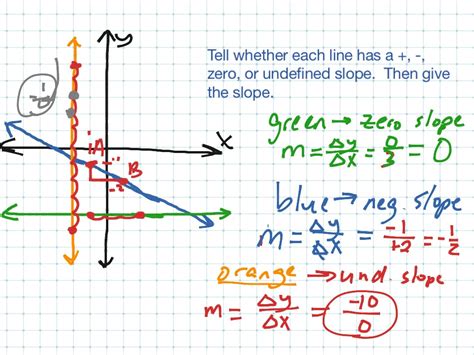 Tell whether each line has a +, -,
zero, or undefined slope. Then give
the slope.
y
x
A
B
-2
green → zero slope
m = Δy/Δx = 0/3 = 0
blue → neg. slope
m = Δy/Δx = -1/+2 = -1/2
orange → und. slope
m = Δy/Δx = -10/0